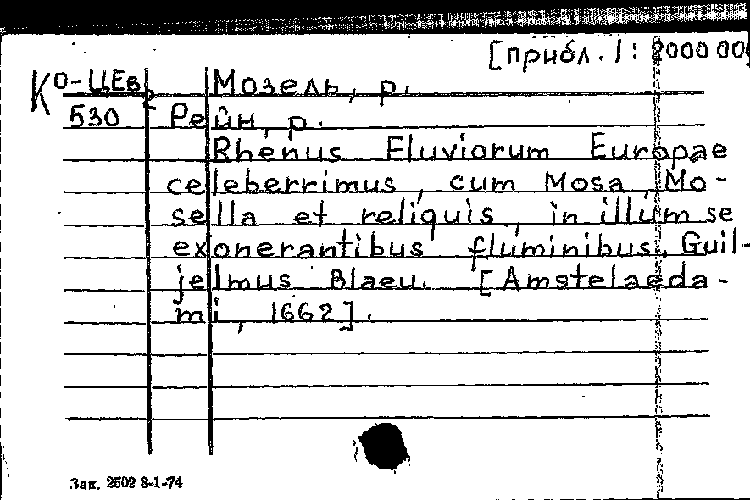 [прибл. 1: 2000 00
Ко-ЦЕв Мозель, р.
530 Рейн, р.
Rhenus Fluviorum Europae
celeberrimus, cum Mosa, Mo-
sella et reliquis, in illum se
exonerantibus fluminibus. Guil-
jelmus Blaeu. [Amstelaeda-
mi, 1662].
Зак. 2602 8-1-74